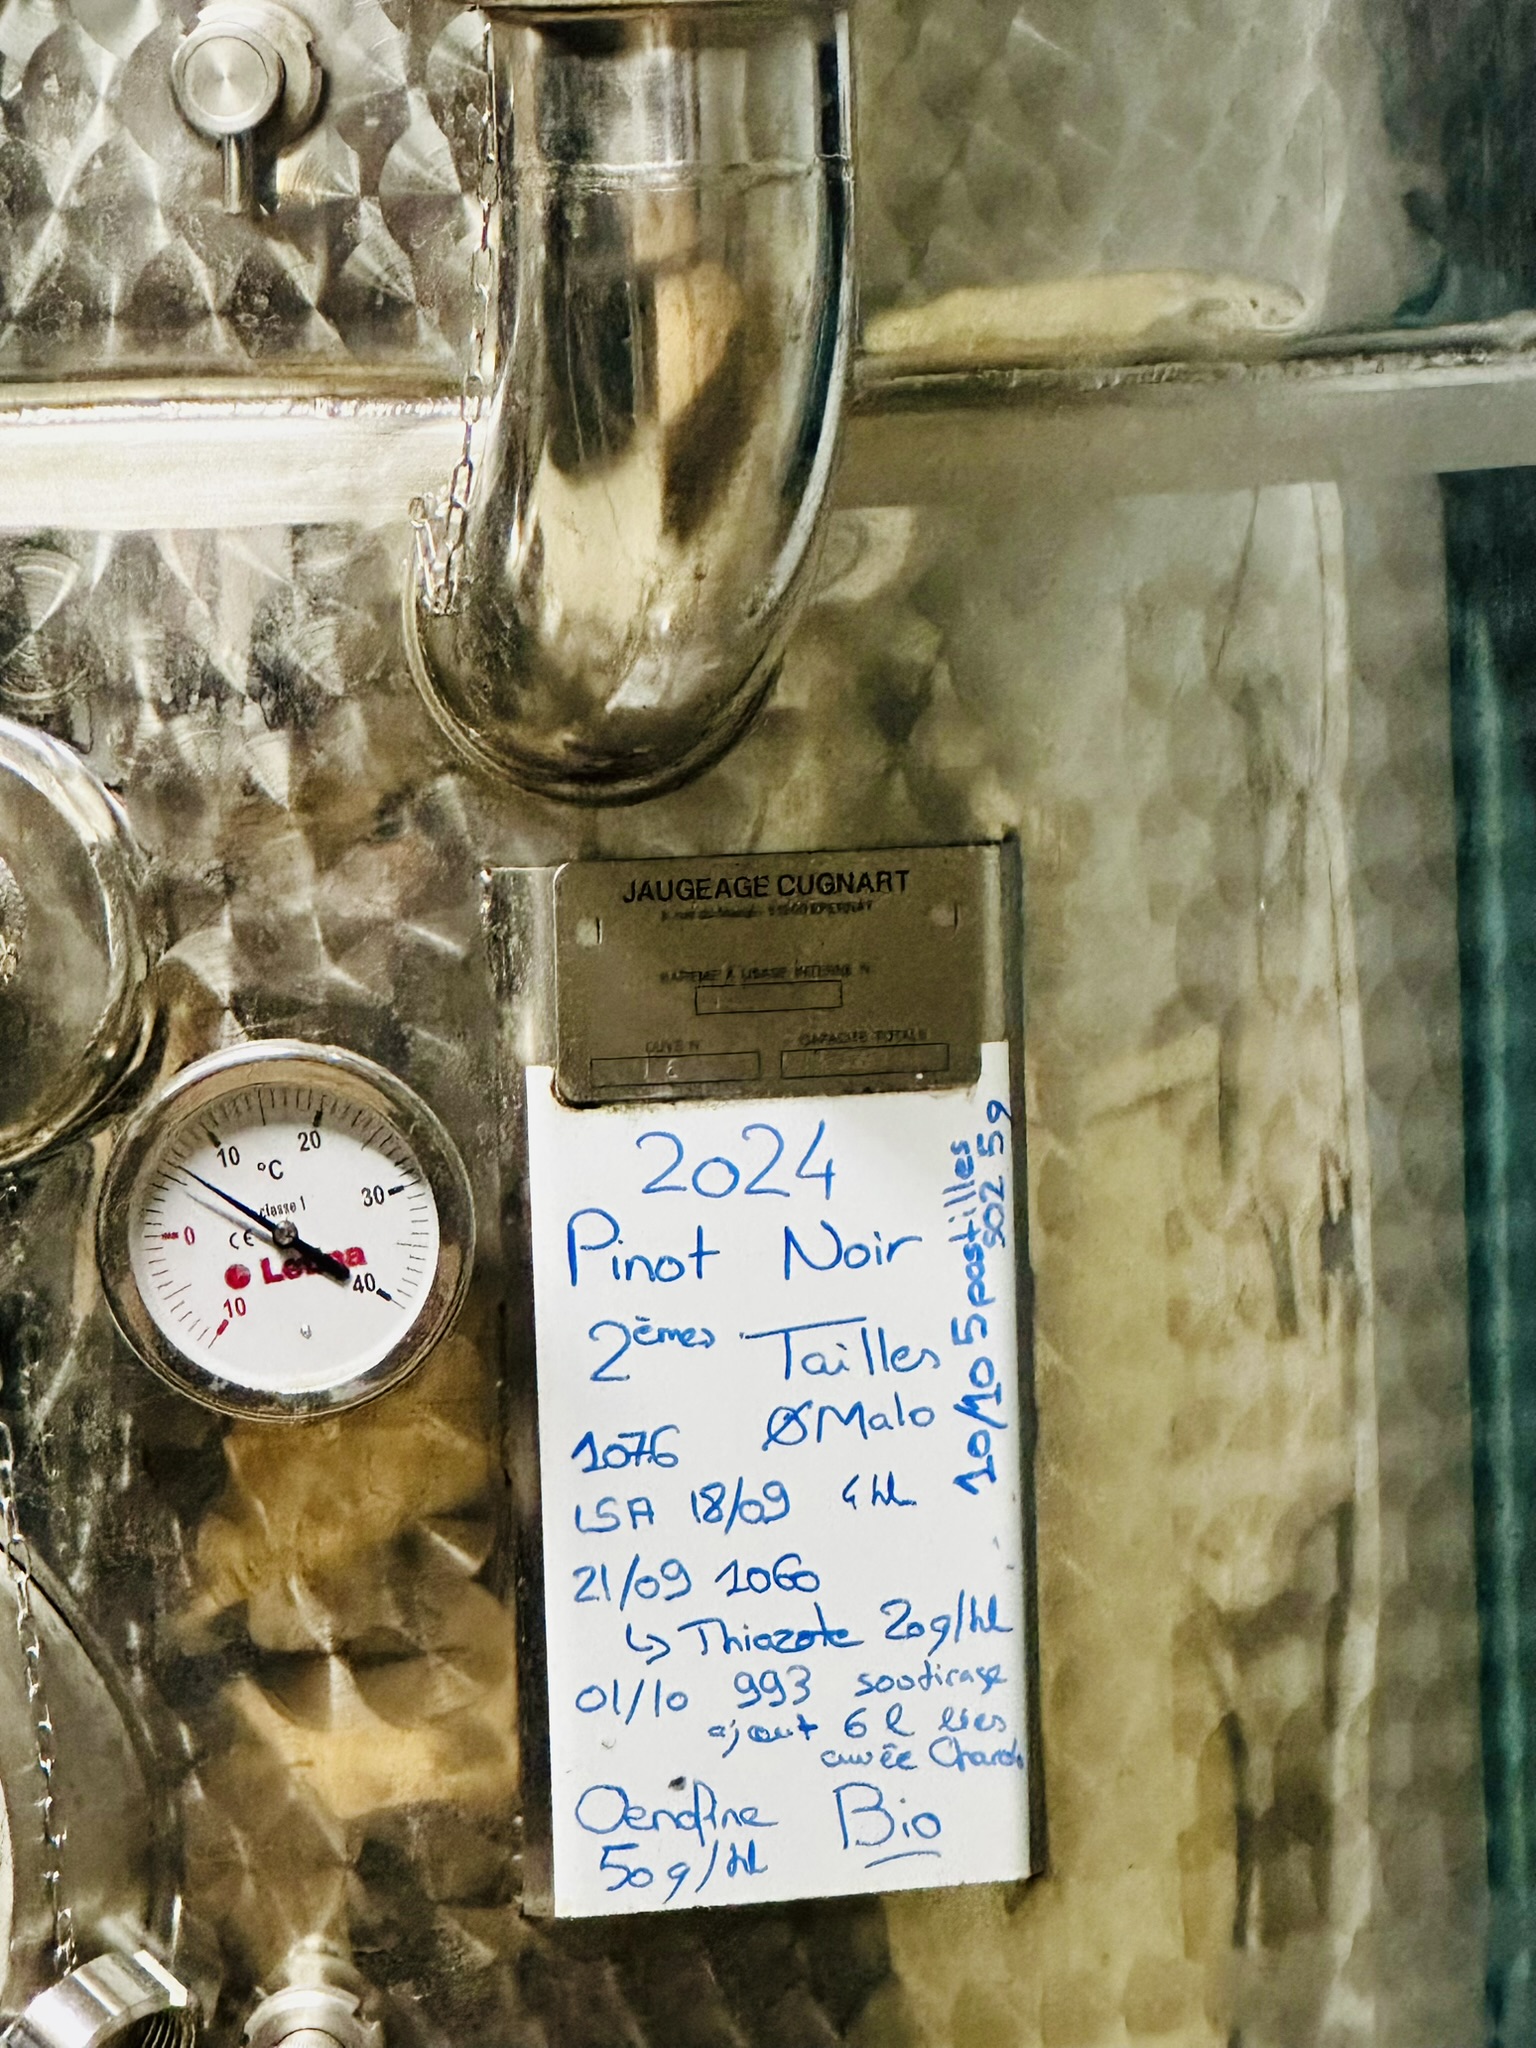 JAUGEAGE CUGNART
EPERNAY
BAREME A USAGE INTERNE N
CUVE N CAPACITE TOTALE
16
10 20 30 40 0 10
°C
classe 1
CE
2024
Pinot Noir
2èmes Tailles
1076 Ø Malo
LSA 18/09 4 hL
21/09 1060
↳ Thiazote 20g/hL
01/10 993 soutirage
ajout 6 l lies
cuvée Chardo
Oenofine Bio
50g/hL
10/10 5 pastilles
SO2 5g